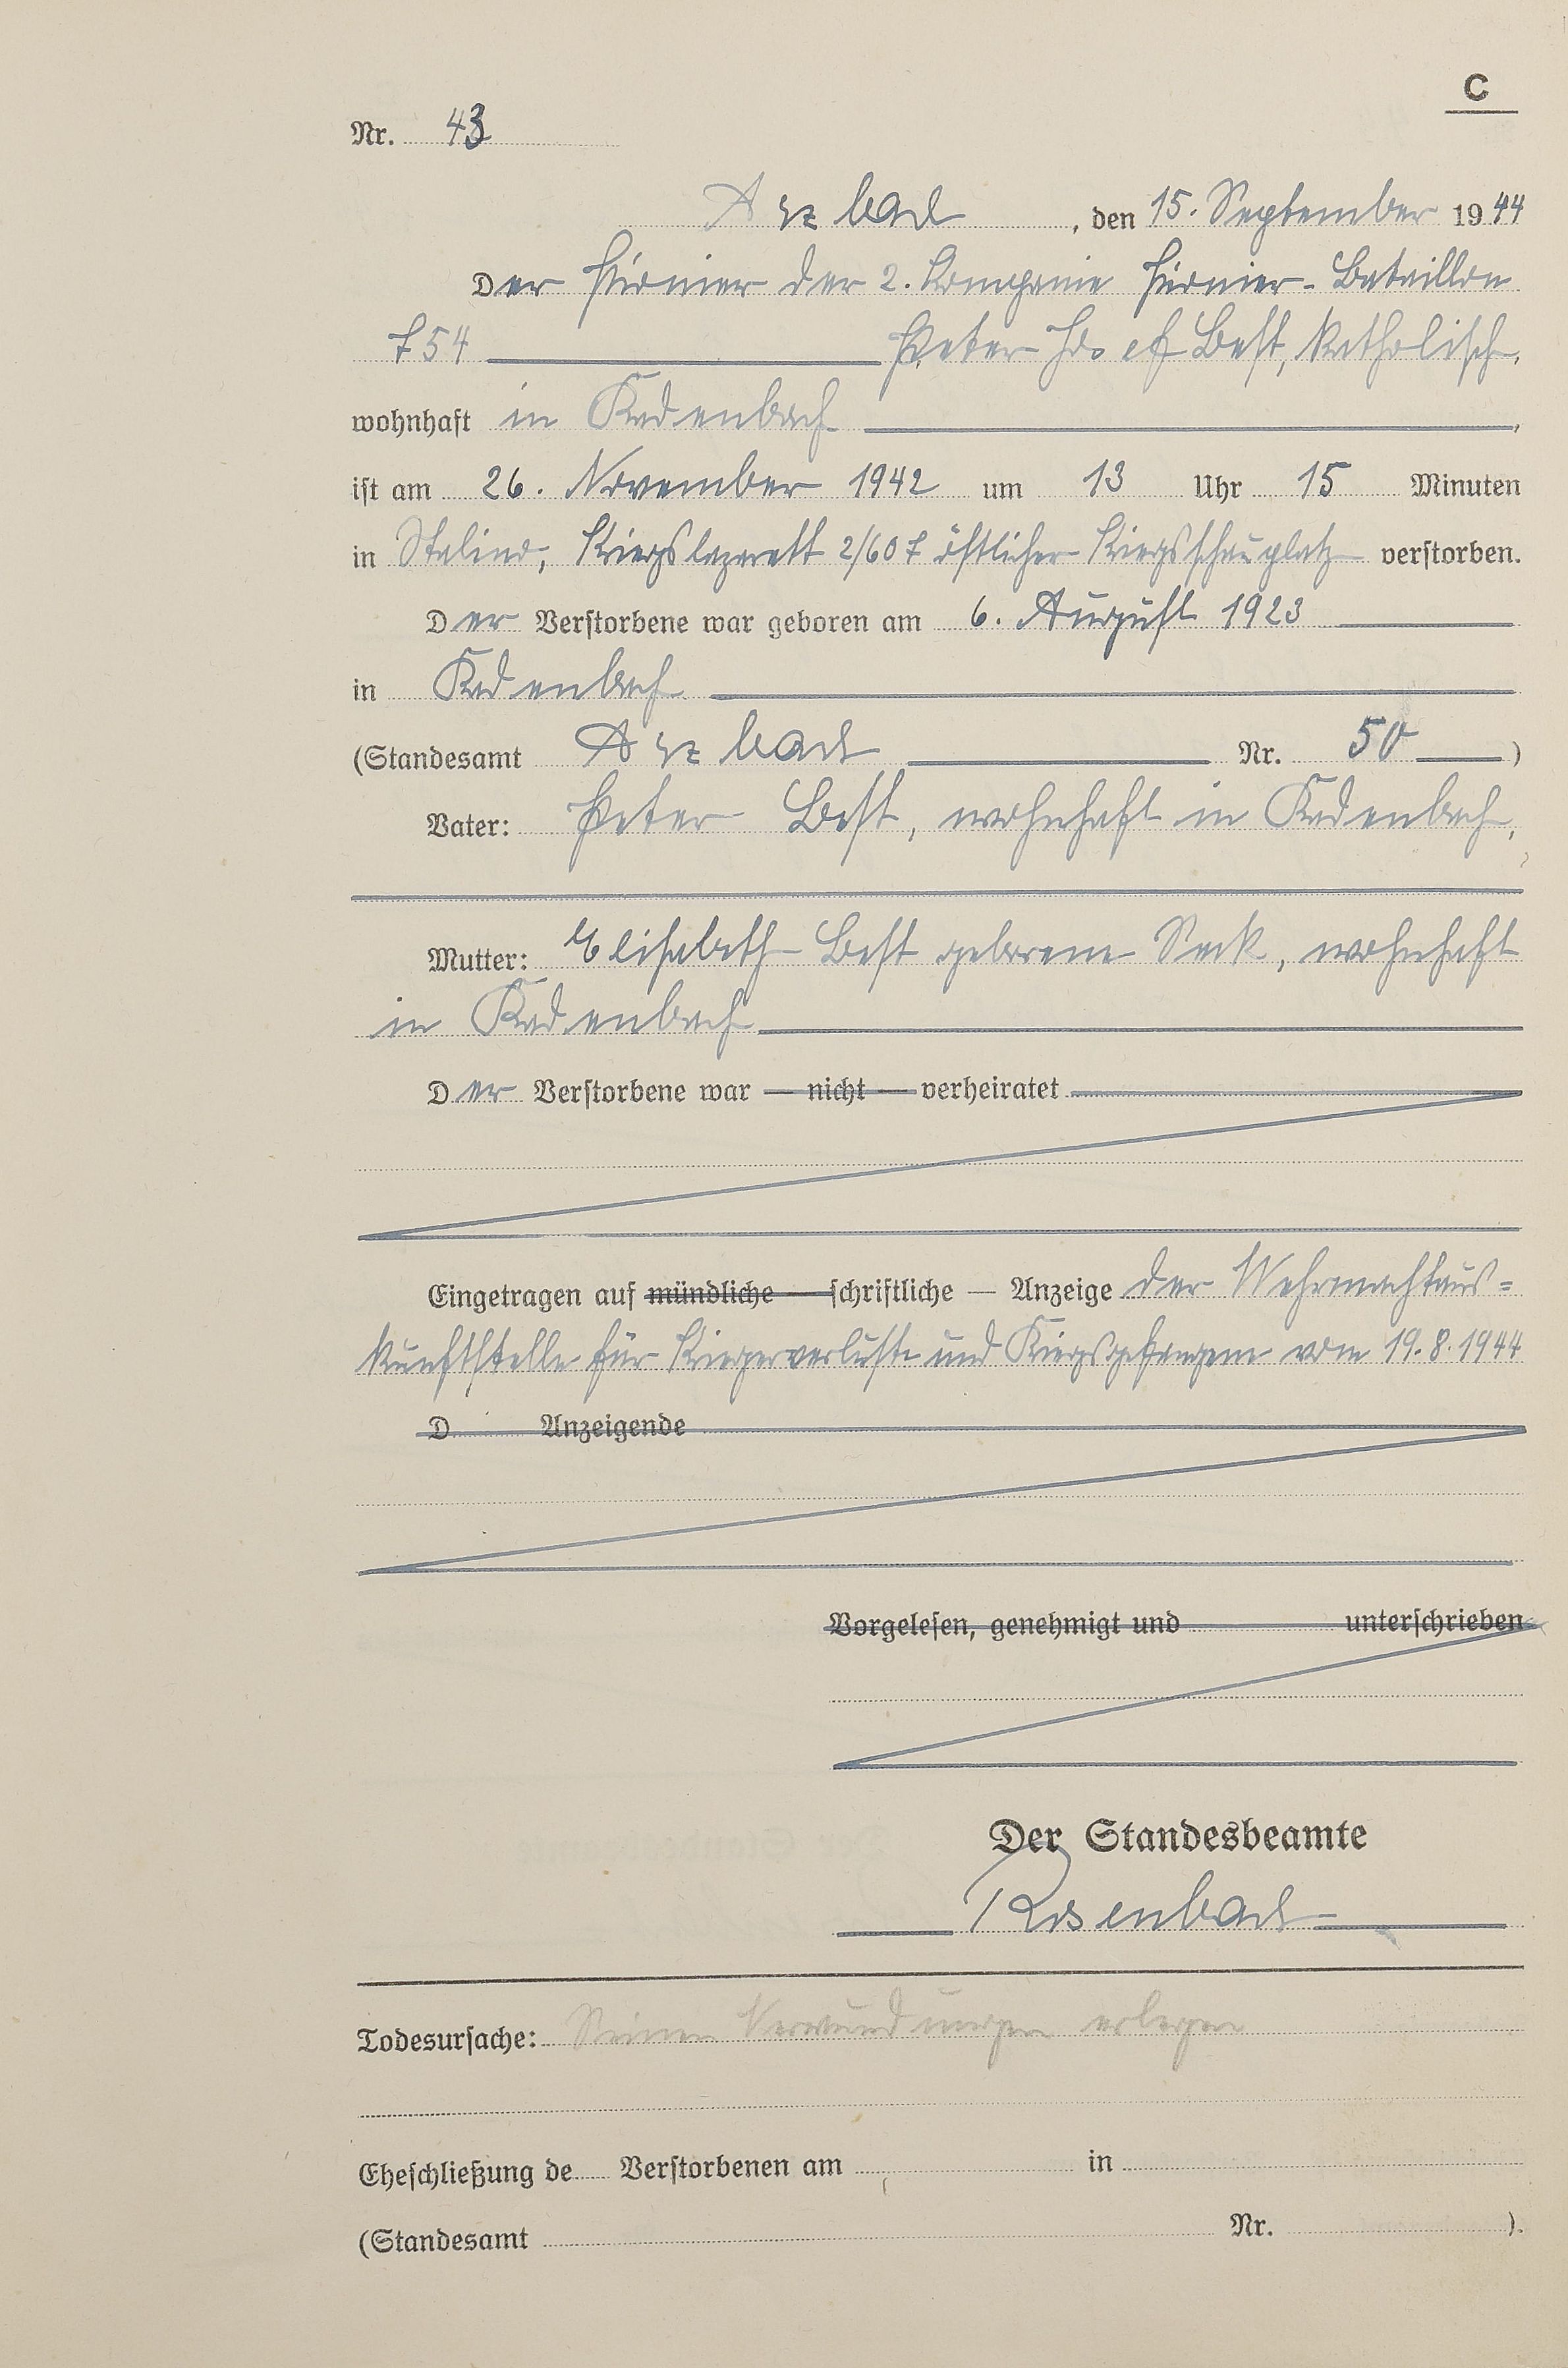 C
Nr. 43
Arzbach, den 15. September 1944
Der Pionier der 2. Kompanie Pionier-Bataillon
754 Peter Josef Best, katholisch,
wohnhaft in Kadenbach,
ist am 26. November 1942 um 13 Uhr 15 Minuten
in Stalino, Kriegslazarett 2/607 östlicher Kriegsschauplatz verstorben.
Der Verstorbene war geboren am 6. August 1923
in Kadenbach
(Standesamt Arzbach Nr. 50)
Vater: Peter Best, wohnhaft in Kadenbach,
Mutter: Elisabeth Best geborene Sack, wohnhaft
in Kadenbach
Der Verstorbene war — nicht — verheiratet
Eingetragen auf mündliche — schriftliche — Anzeige der Wehrmachtaus=
kunftstelle für Kriegerverluste und Kriegsgefangene vom 19.8.1944
D Anzeigende
Vorgelesen, genehmigt und unterschrieben
Der Standesbeamte
Rosenbach
Todesursache: Seinen Verwundungen erlegen
Eheschließung de Verstorbenen am in
(Standesamt Nr. ).